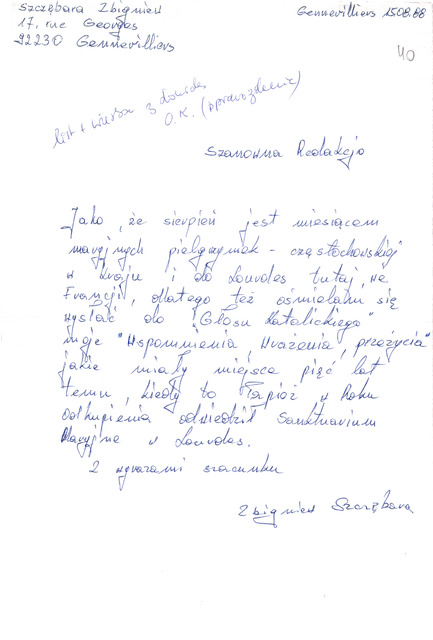 Szczębara Zbigniew
17, rue Georges
92230 Gennevilliers
Gennevilliers 15.08.88
40
list + wiersz z Lourdes
O.K. (sprawozdanie)
Szanowna Redakcjo
Jako, że sierpień jest miesiącem
maryjnych pielgrzymek - częstochowskiej
w kraju i do Lourdes tutaj, we
Francji, dlatego też ośmieliłem się
wysłać do "Głosu Katolickiego"
moje "Wspomnienia, Wrażenia, przeżycia"
jakie miały miejsce pięć lat
temu, kiedy to Papież w Roku
Odkupienia odwiedził Sanktuarium
Maryjne w Lourdes.
Z wyrazami szacunku
Zbigniew Szczębara